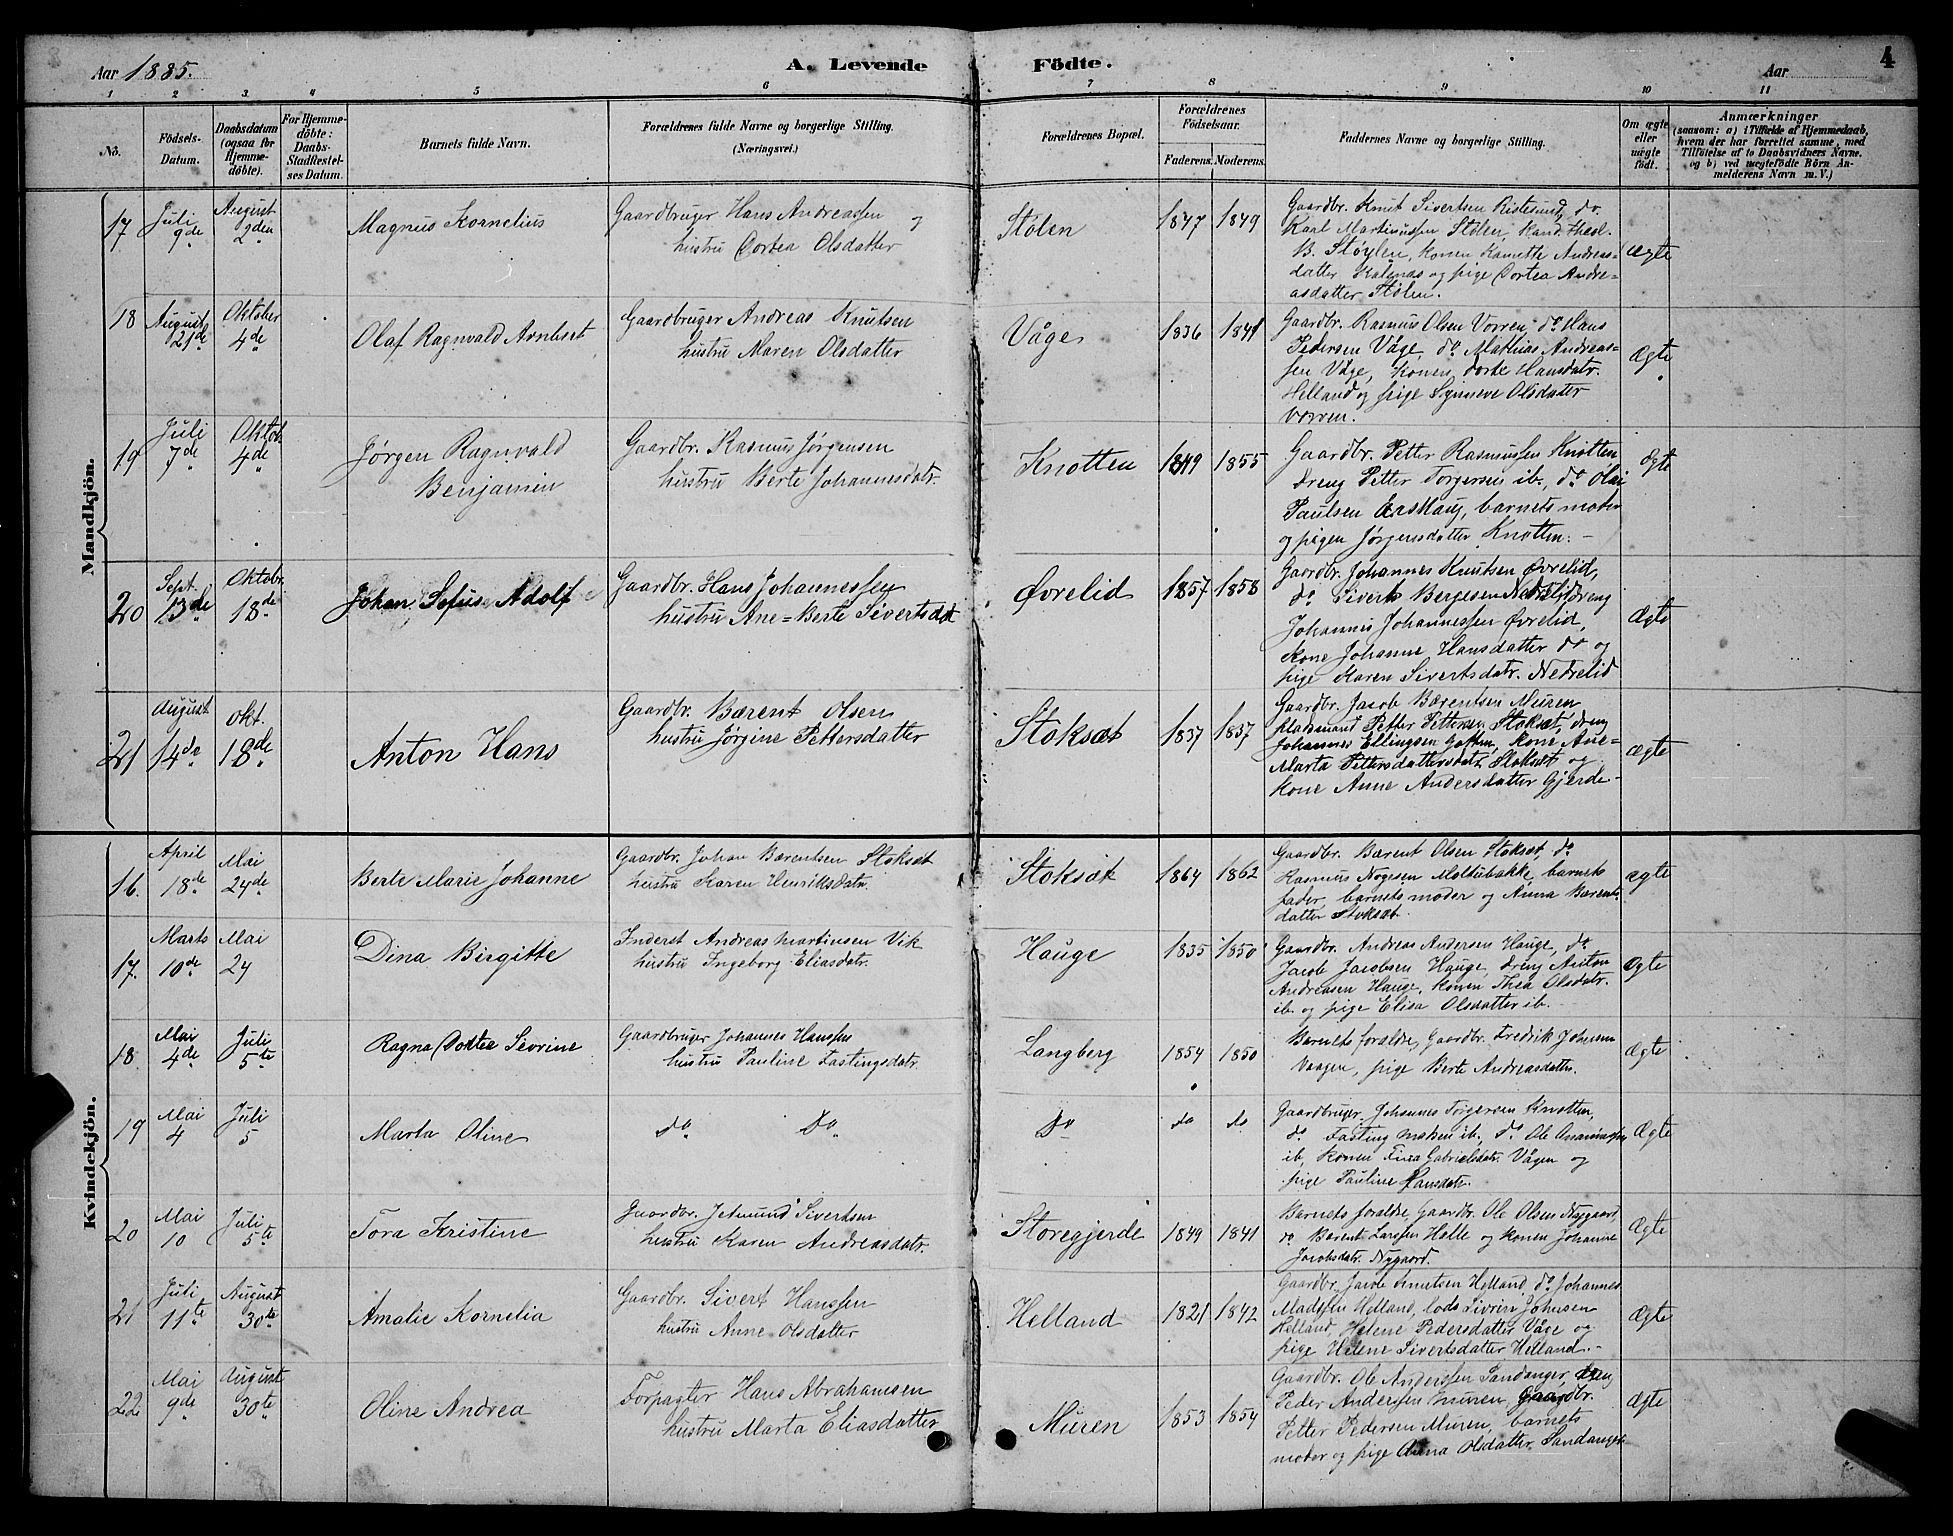 Aar 1885. A. Levende Födte. Aar 4
1 2 3 4 5 6 7 8 9 10 11
No.
Födsels-Datum.
Daabsdatum (ogsaa for Hjemme-døbte).
For Hjemme-döbte: Daabs-Stadfæstel-ses Datum.
Barnets fulde Navn.
Forældrenes fulde Navne og borgerlige Stilling.
(Næringsvei.)
Forældrenes Bopæl.
Forældrenes Födselsaar.
Faderens. Moderens.
Faddernes Navne og borgerlige Stilling.
Om ægte eller uægte födt.
Anmærkninger
(saasom: a) i Tilfælde af Hjemmedaab,
hvem der har forrettet samme, med
Tilföielse af to Daabsvidners Navne.
og b) ved uægtefödte Börn An-
melderens Navn m. V.)
Mandkjön.
17 Juli 9de August 9den Magnus Kornelius
Gaardbruger Hans Andreassen og
hustru Dortea Olsdatter
Stølen 1847 1849
Gaardbr. Knut Sivertsen Ristesund, do.
Karl Martinussen Stølen, Kand. theol.
B. Støylen, konen Kanutte Andreas-
datter Kalsnas og pige Dortea Andre-
asdatter Stølen.
ægte
18 August 21de Oktober 4de Olaf Ragnvald Arnbset
Gaardbruger Andreas Knutsen
hustru Maren Olsdatter
Våge 1836 1841
Gaardbr. Rasmus Olsen Vorren, do Hans
Pedersen Våge, do Mathias Andreas-
sen Våge, konen Dorte Hansdatr.
Helland og pige Synneve Olsdatter
Vorren.
Ægte
19 Juli 7de Oktob. 4de Jørgen Ragnvald
Benjamin
Gaardbr. Rasmus Jørgensen
hustru Berte Johannesdatr.
Knotten 1849 1855
Gaardbr. Petter Rasmussen Knotten
dreng Petter Torgersen ib., do Olai
Paulsen Erskaug, barnets moder
og pigen Jørgensdatter Knotten. -
Ægte
20 Sept. 13de Oktobr. 18de Johan Sefus Adolf
Gaardbr. Hans Johannessen
hustru Ane=Berte Sivertsdat
Øvrelid 1857 1858
Gaardbr. Johannes Knutsen Øvrelid,
do Siverts Bergesen Nedrelid, dreng
Johannes Johannessen Øvrelid,
kone Johanne Hansdatter do og
pige Karen Sivertsdatr. Nedrelid
Ægte
21 August 14de Okt. 18de Anton Hans
Gaardbr. Bærent Olsen
hustru Jørgine Pettersdatter
Stoksæt 1837 1857
Gaardbr. Jacob Bærentsen Muren
pladsmand Petter Pettersen Stoksæt, dreng
Johannes Ellingsen Gotten, kone Ane=
Marta Pettersdatter Stoksæt og
kone Anne Andersdatter Gjerde -
ægte
Kvindekjön.
16. April 18de Mai 24de Berte Marie Johanne
Gaardbr. Johan Bærentsen Stoksæt
hustru Karen Henriksdatr.
Stoksæt 1864 1862
Gaardbr. Bærent Olsen Stoksæt, do
Rasmus Nogvsen Moltubakke, barnets
fader, barnets moder og Anna Bærents-
datter Stoksæt.
ægte
17. Marts 10de Mai 24 Dina Birgitte
Inderst Andreas Martinsen Vik
hustru Ingeborg Eliasdatr.
Hauge 1835 1850
Gaardbr. Andreas Andersen Hauge, do
Jacob Jacobsen Hauge, dreng Anton
Andreasen Hauge, konen Thea Olsdatr.
ib. og pige Elisa Olsdatter ib.
Ægte
18. Mai 4de Juli 5te Ragna Dortea Sevrine
Gaardbruger Johannes Hanssen
hustru Pauline Fastingsdatr.
Langberg 1854 1850
Barnets foraldre, Gaardbr. Fredrik Johnsen
Vaagen, pige Berte Andreasdatter.
Ægte
19 Mai 4 Juli 5 Marta Oline
do Do
Do do do
Gaardbruger Johannes Torgersen Knotten,
do Fasting ib., do Ole Ananiassen
ib, konen Fina Gabrielsdatr. Vågen og
pige Pauline Hansdatr.
Ægte
20 Mai 10 Juli 5te Tora Kristine
Gaardbr. Jetmund Sivertsen
hustru Karen Andreasdatr.
Storegjerde 1849 1841
Barnets foraldre, Gaardbr. Ole Olsen Nygaard,
do Bærent Larssen Halle og konen Johanne
Jacobsdatr. Nygaard.
Ægte
21 Juli 11te August 30te Amalie Kornelia
Gaardbr. Sivert Hanssen
hustru Anne Olsdatter
Helland 1821 1842
Gaardbr. Jacob Knutsen Helland, do Johannes
Madssen Helland, lods Sivrin Johnsen
Helland, Helene Pedersdatter Våge og
pige Helene Sivertsdatter Helland. -
Ægte
22 Mai 9de August 30te Oline Andrea
Forpagter Hans Abrahamsen
hustru Marta Eliasdatter
Muren 1853 1854
Gaardbr. Ole Anderssen Sandanger, dreng
Peder Anderssen Muren, Gaardbr.
Petter Pedersen Muren, barnets
moder og pige Anna Olsdatter Sandanger
Ægte